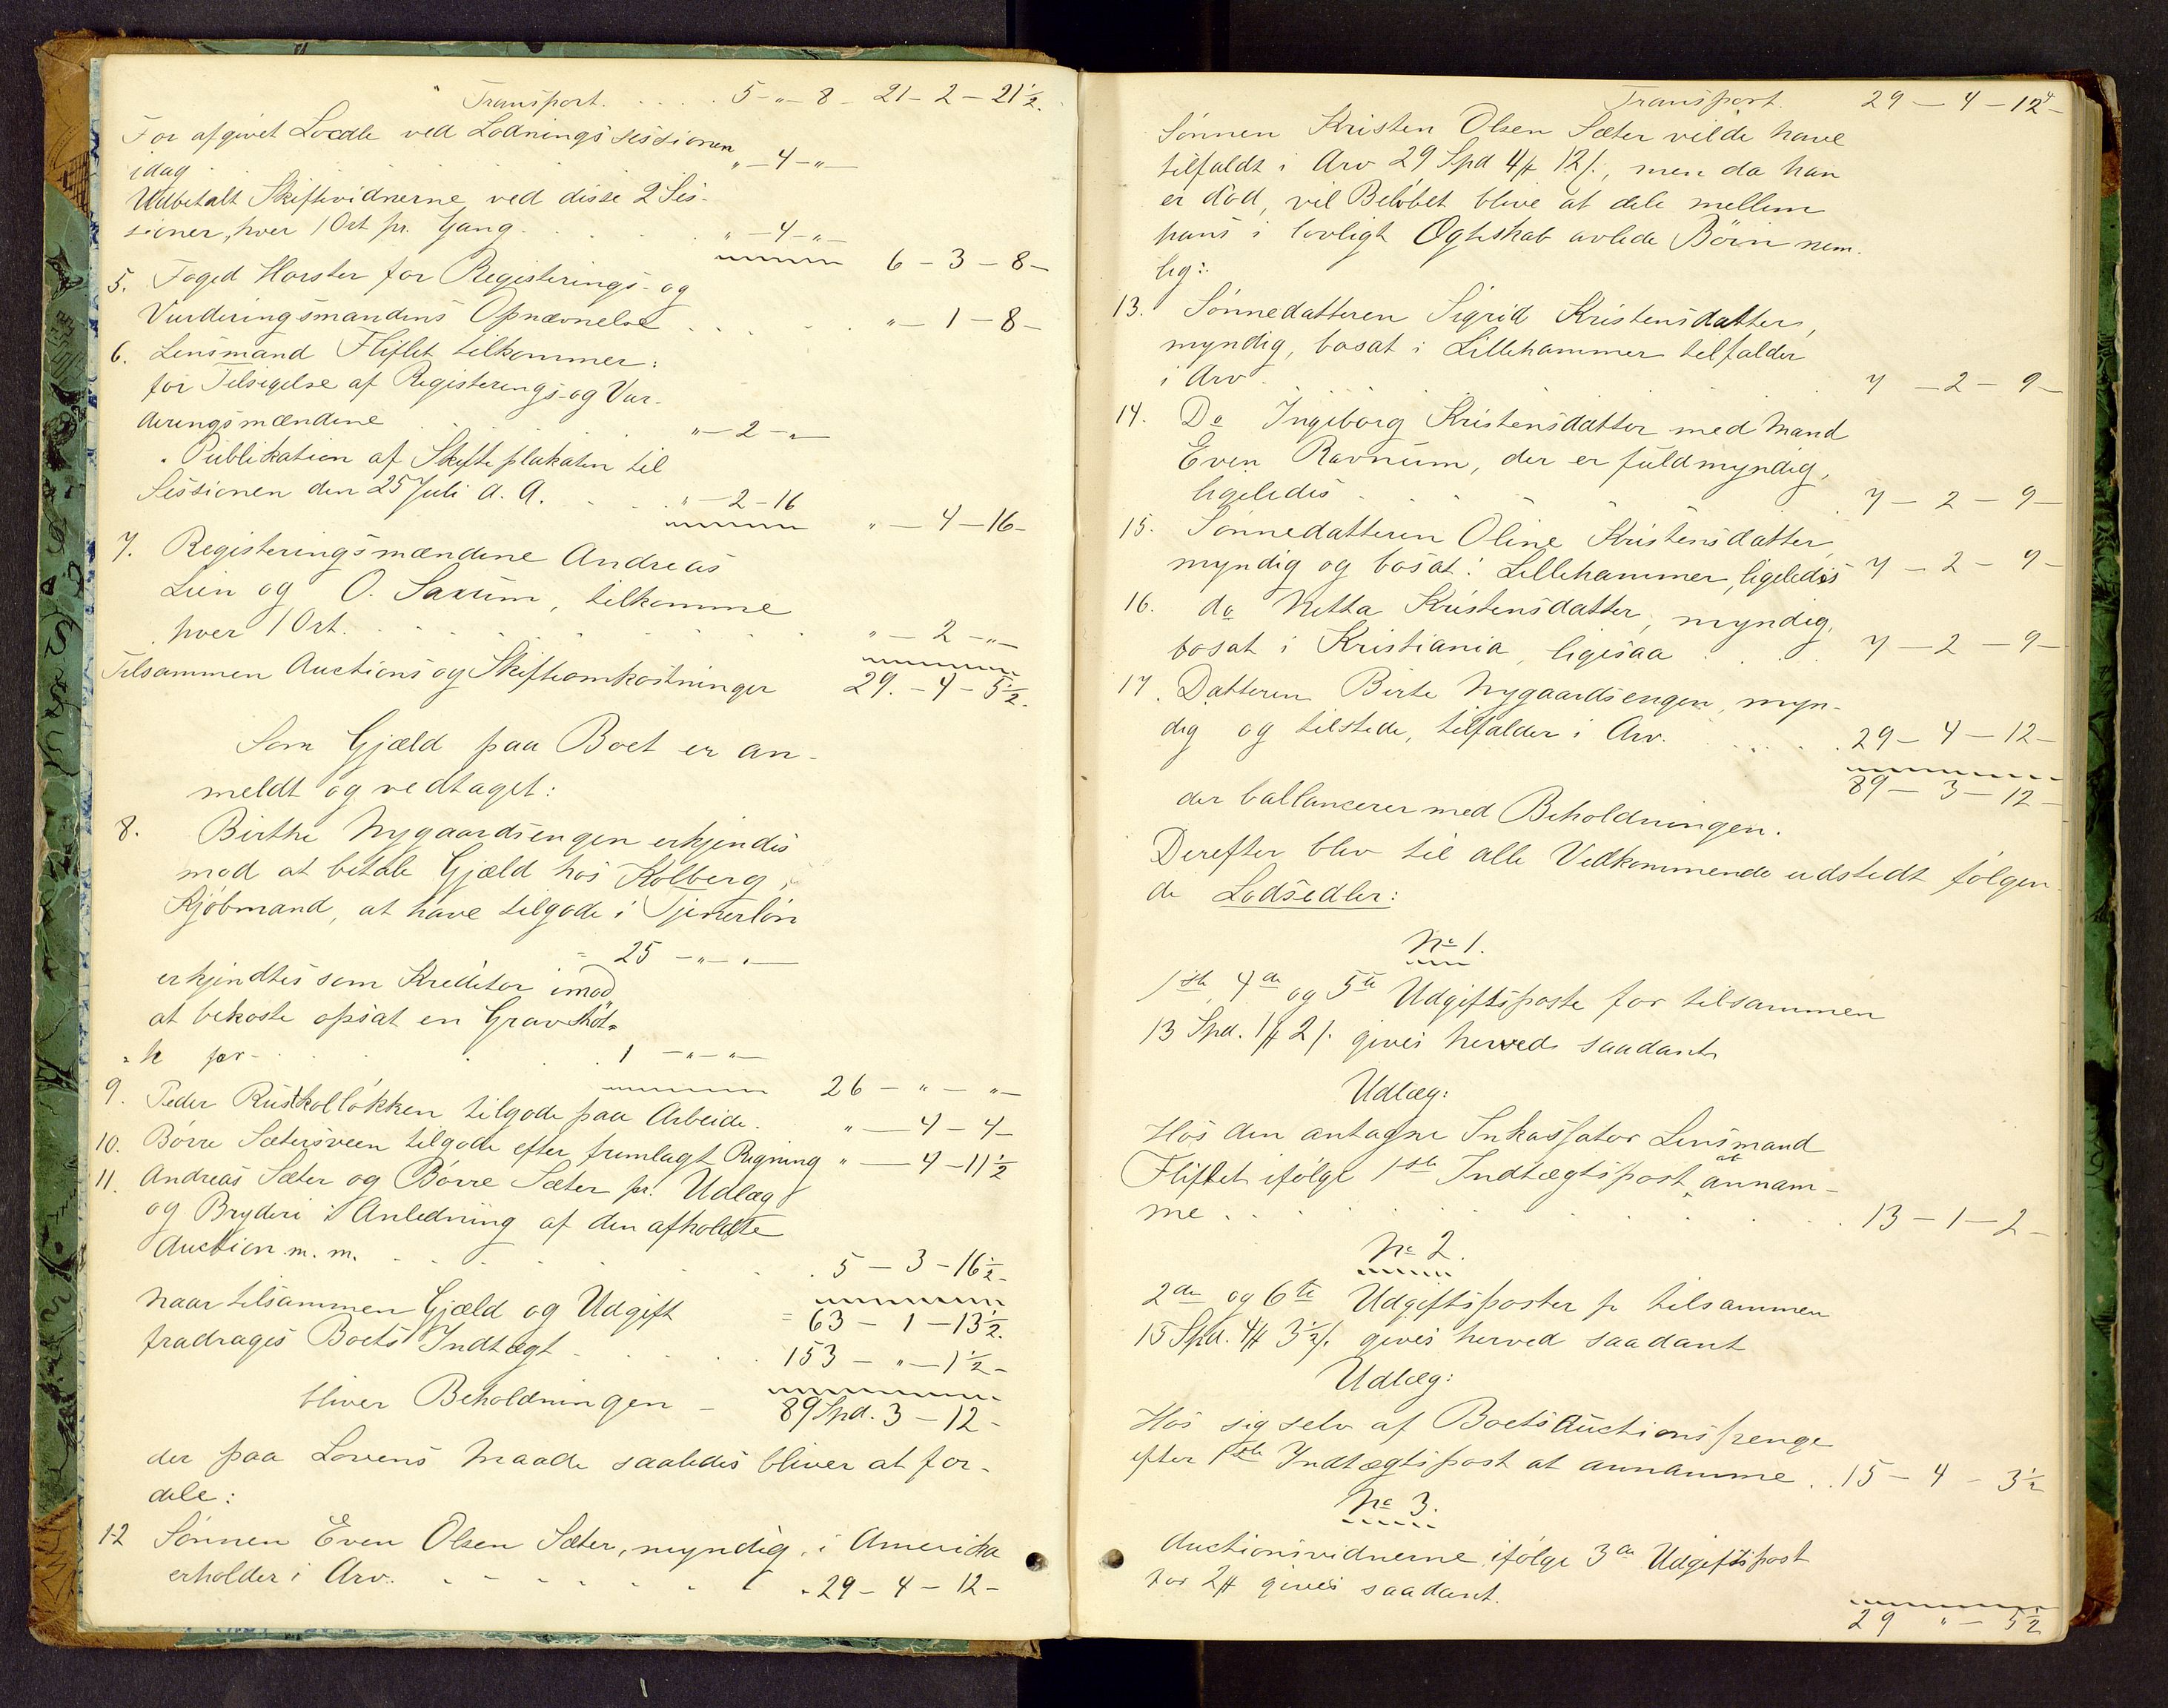 Transport. . . . . 5 - „ - 8 - 21 - 2 - 21½.
For afgivet Locale ved Lodningssessionen
idag . „ - 4 - „ -
Udbetalt Skiftevidnerne ved disse 2 Ses-
sioner, hver 1 Ort pr. Gang . . . . „ - 4 - „ - 6 - 3 - 8 -
5. Foged Horster for Registerings- og
Vurderingsmændens Opnævnelse . . . . „ - 1 - 8 -
6. Lensmand Fliflet tilkommer:
for Tilsigelse af Registerings- og Vur-
deringsmændene . . . „ - 2 - „ -
„ Publikation af Skifteplakaten til
Sessionen den 25 Juli d. A. . . „ - 2 - 16 „ - 4 - 16 -
7. Registeringsmændene Andreas
Lien og O. Saxum, tilkomme
hver 1 Ort. . . . . „ - 2 - „ -
Tilsammen Auctions og Skifteomkostninger 29. - 4 - 5½.
Som Gjæld paa Boet er an-
meldt og vedtaget:
8. Birthe Nygaardsengen erkjendes
mod at betale Gjæld hos Kolberg,
Kjöbmand, at have tilgode i Tjenerlön
= 25 - „ - „ -
erkjendtes som Kreditor imod
at bekoste opsat en Gravstöt=
=te for - . . . 1 - „ - „ - 26 - „ - „ -
9. Peder Rustkollökken tilgode paa Arbeide. „ - 4 - 4 -
10. Börre Sætersveen tilgode efter fremlagt Regning „ - 4 - 11½
11. Andreas Sæter og Börre Sæter pr. Udlæg
og Bryderi i Anledning af den afholdte
Auction m. m. . . . . 5 - 3 - 16½ -
naar tilsammen Gjæld og Udgift = 63 - 1 - 13½.
fradrages Boets Indtægt - . . . 153 - „ - 1½ -
bliver Beholdningen - 89 Spd. 3 - 12 -
der paa Lovens Maade saaledes bliver at for-
dele:
12 Sönnen Even Olsen Sæter, myndig, i Amerika
erholder i Arv. - - - - - 29 - 4 - 12 -
Transport. 29 - 4 - 12 -
Sönnen Kristen Olsen Sæter vilde have
tilfaldt i Arv 29 Spd 4 ₶ 12 ſ., men da han
er död, vil Belöbet blive at dele mellem
hans i lovligt Ægteskab avlede Börn nem-
lig:
13. Sönnedatteren Sigrid Kristensdatter,
myndig, bosat i Lillehammer tilfalder
i Arv . . . 7 - 2 - 9 -
14. Do Ingeborg Kristensdatter med Mand
Even Ravnum, der er fuldmyndig,
ligeledes . . . 7 - 2 - 9 -
15. Sönnedatteren Oline Kristensdatter,
myndig og bosat i Lillehammer, ligeledes 7 - 2 - 9 -
16. do Netta Kristensdatter, myndig,
bosat i Kristiania, ligesaa . . . 7 - 2 - 9 -
17. Datteren Birte Nygaardsengen, myn-
dig og tilstede, tilfalder i Arv. . . . . 29 - 4 - 12 -
89 - 3 - 12 -
der ballancerer med Beholdningen.
Derefter blev til alle Vedkommende udstedt fölgen-
de Lodsedler:
No 1.
1ste, 4de og 5te Udgiftsposte for tilsammen
13 Spd. 1 ₶ 2 ſ. gives herved saadant
Udlæg:
Hos den antagne Inkassator Lensmand
Fliflet ifölge 1ste Indtægtspost at annam-
me . . . . 13 - 1 - 2 -
No 2.
2den og 6te Udgiftsposter fr tilsammen
15 Spd. 4 ₶ 3½ ſ. gives herved saadant
Udlæg:
Hos sig selv af Boets Auctionspenge
efter 1ste Indtægtspost at annamme . . 15 - 4 - 3½
No 3.
Auctionsvidnerne ifölge 3de Udgiftspost
for 2 ₶ gives saadant.
29 „ - 5½